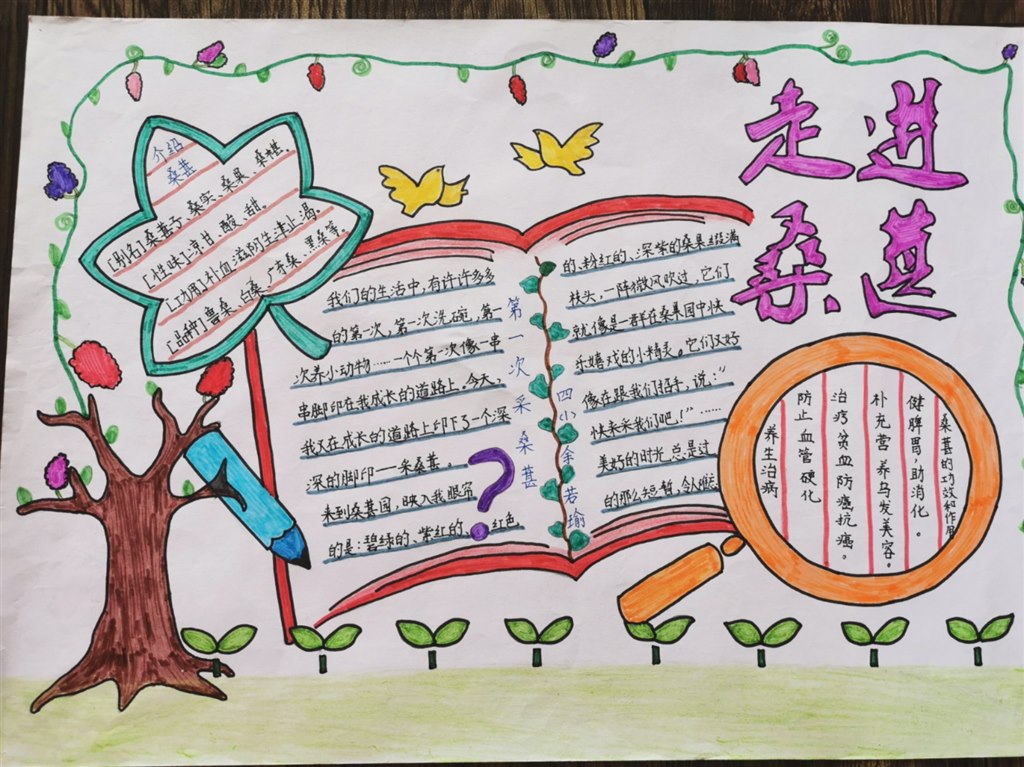 走进
桑葚
介绍
桑葚
[别名]桑葚子、桑实、桑果、桑椹。
[性味]凉.甘、酸、甜。
[功用]补血滋阴,生津止渴。
[品种]鲁桑、白桑、广东桑、黑桑等。
第一次采桑葚
四小 余若瑜
我们的生活中,有许许多多
的第一次,第一次洗碗,第一
次养小动物……一个个第一次像一串
串脚印在我成长的道路上。今天,
我又在成长的道路上印下了一个深
深的脚印——采桑葚。
来到桑葚园,映入我眼帘
的是:碧绿的、紫红的、红色
的、粉红的、深紫的桑果缀满
枝头,一阵微风吹过,它们
就像是一群在桑果园中快
乐嬉戏的小精灵。它们又好
像在跟我们招手,说:“
快来采我们吧!”……
美好的时光总是过
的那么短暂,令人
桑葚的功效和作用
健脾胃,助消化。
补充营养乌发美容。
治疗贫血防癌抗癌。
防止血管硬化
养生治病